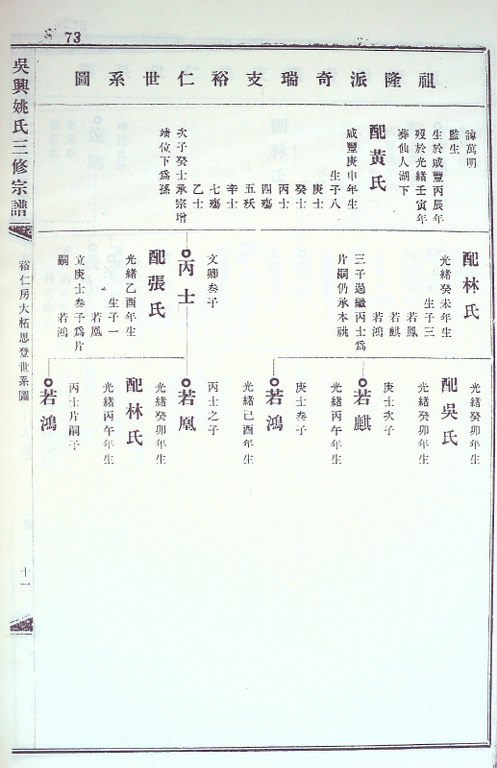 73
祖隆派奇瑞支裕仁世系圖
諱萬明
監生
生於咸豐丙辰年
歿於光緒壬寅年
葬仙人湖下
配黃氏
咸豐庚申年生
生子八
庚士
癸士
丙士
四殤
五殀
辛士
七殤
乙士
次子癸士承宗增
靖位下為孫
配林氏
光緒癸未年生
生子三
若鳳
若麒
若鴻
三子過繼丙士為
片嗣仍承本祧
丙士
文卿叁子
配張氏
光緒乙酉年生
生子一
若凰
立庚士叁子為片
嗣
若鴻
光緒癸卯年生
配吳氏
光緒癸卯年生
若麒
庚士次子
光緒丙午年生
若鴻
庚士叁子
光緒己酉年生
若凰
丙士之子
光緒癸卯年生
配林氏
光緒丙午年生
若鴻
丙士片嗣子
吳興姚氏三修宗譜
裕仁房大柘思登世系圖
十一